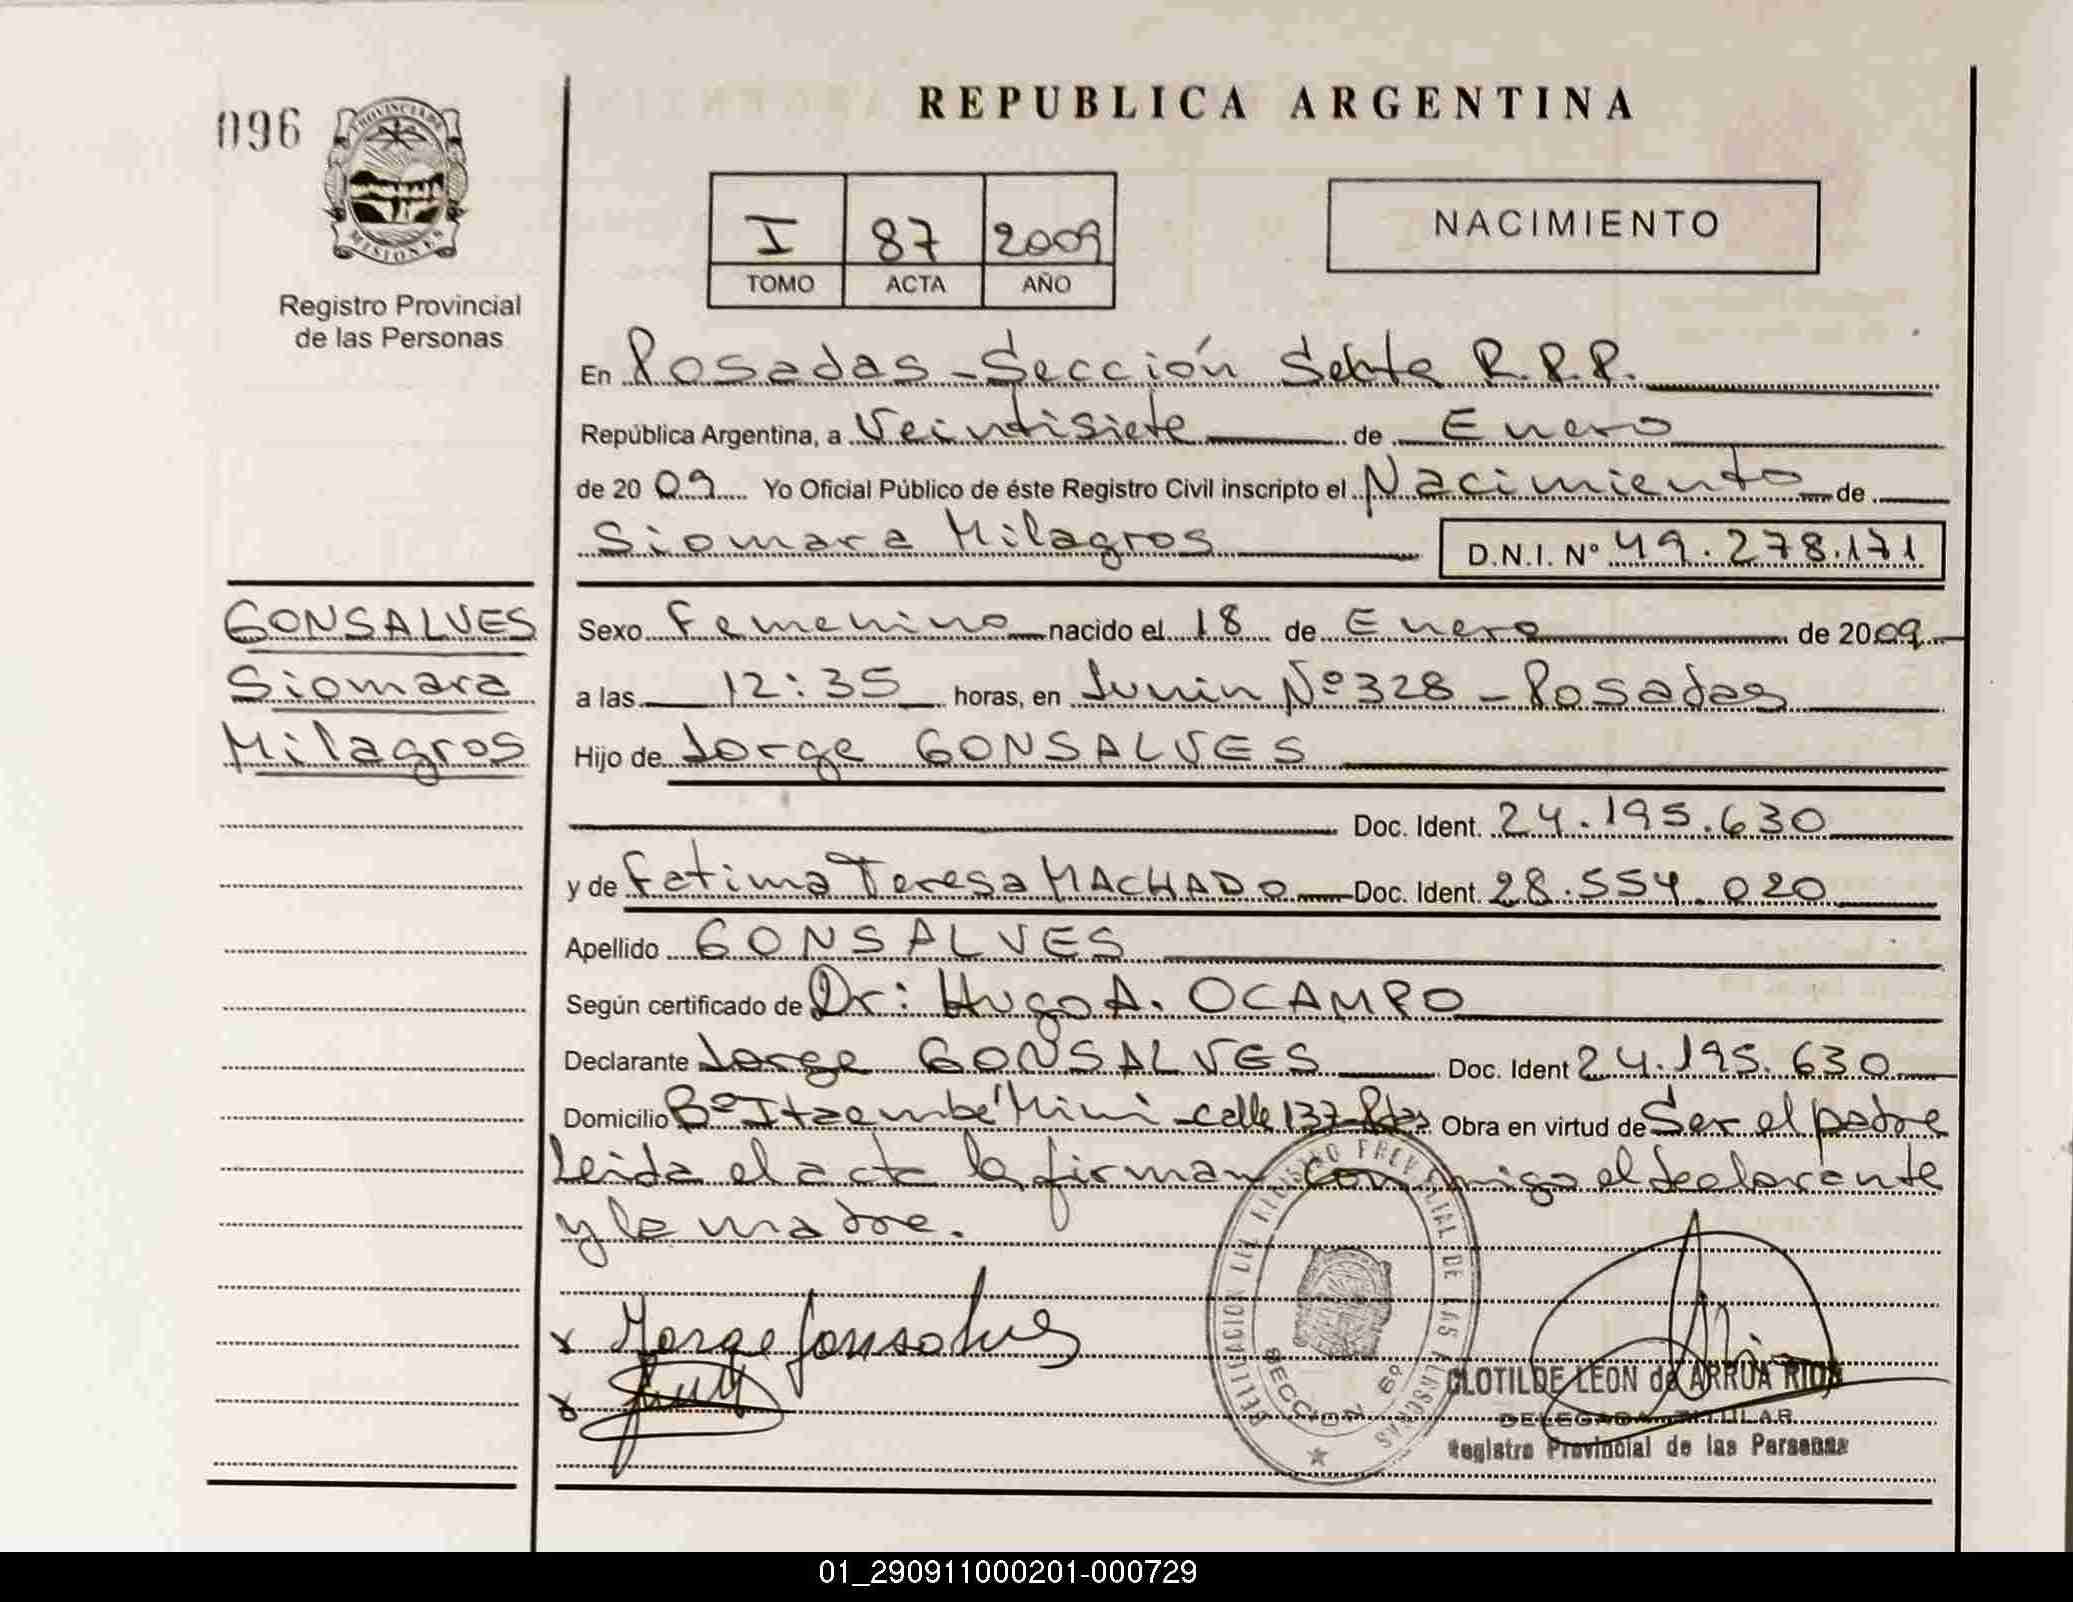 096
PROVINCIA DE
MISIONES
Registro Provincial
de las Personas
REPUBLICA ARGENTINA
I 87 2009
TOMO ACTA AÑO
NACIMIENTO
En Posadas - Sección Sexta R.P.P.
República Argentina, a Veintisiete de Enero
de 2009 Yo Oficial Público de éste Registro Civil inscripto el Nacimiento de
Siomara Milagros D.N.I. N° 49.278.171
GONSALVES
Siomara
Milagros
Sexo Femenino nacido el 18 de Enero de 2009
a las 12:35 horas, en Junin Nº 328 - Posadas
Hijo de Jorge GONSALVES
Doc. Ident. 24.195.630
y de Fatima Teresa MACHADO Doc. Ident. 28.554.020
Apellido GONSALVES
Según certificado de Dr: Hugo A. OCAMPO
Declarante Jorge GONSALVES Doc. Ident 24.195.630
Domicilio Bº Itaembé Mini - calle 137 - Pdas Obra en virtud de Ser el padre
Leida el acta la firman conmigo el declarante
y la madre.
x Jorge Gonsalves
x
SECCION 6º
CLOTILDE LEON de ARRUA RION
DELEGADA TITULAR
Registro Provincial de las Personas
01_290911000201-000729